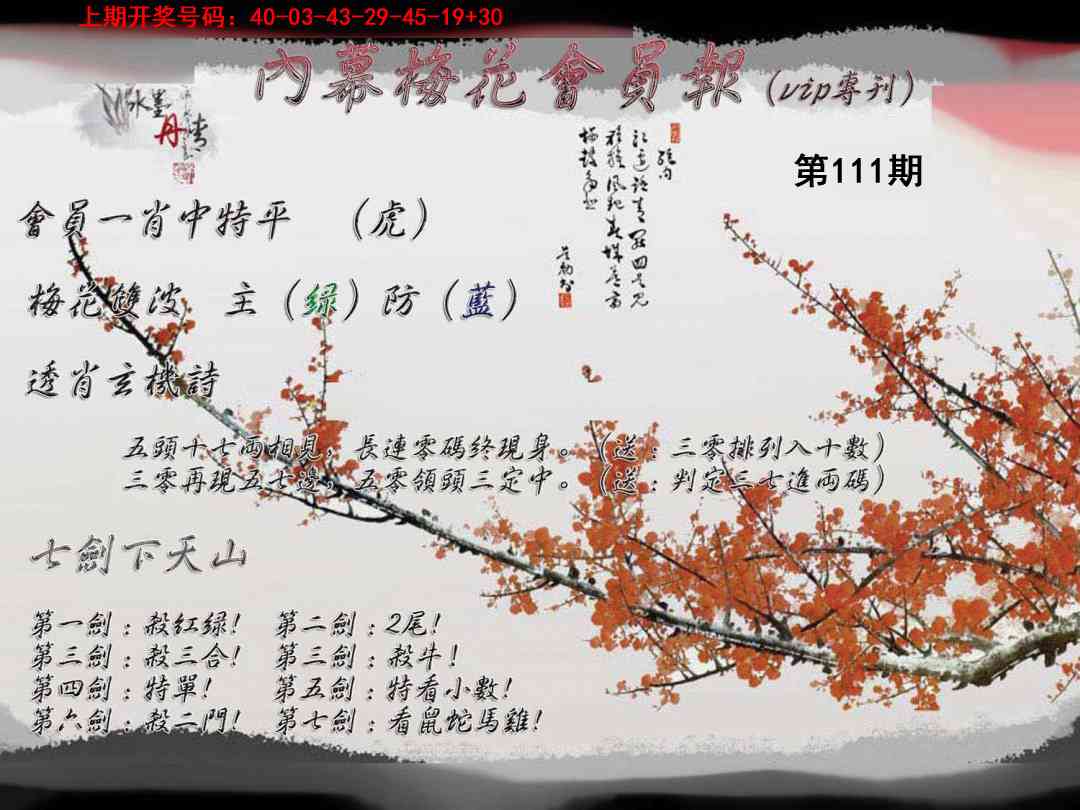 上期开奖号码：40-03-43-29-45-19+30
內幕梅花會員報（vip專刊）
水墨
丹青
第111期
會員一肖中特平 （虎）
梅花雙波 主（緑）防（藍）
透肖玄機詩
五頭十七両相見，長連零碼终現身。（送：三零排列入十數）
三零再現五七邊，五零領頭三定中。（送：判定三七進両碼）
七劍下天山
第一劍：殺紅绿！ 第二劍：2尾！
第三劍：殺三合！ 第三劍：殺牛！
第四劍：特單！ 第五劍：特看小數！
第六劍：殺二門！ 第七劍：看鼠蛇馬雞！